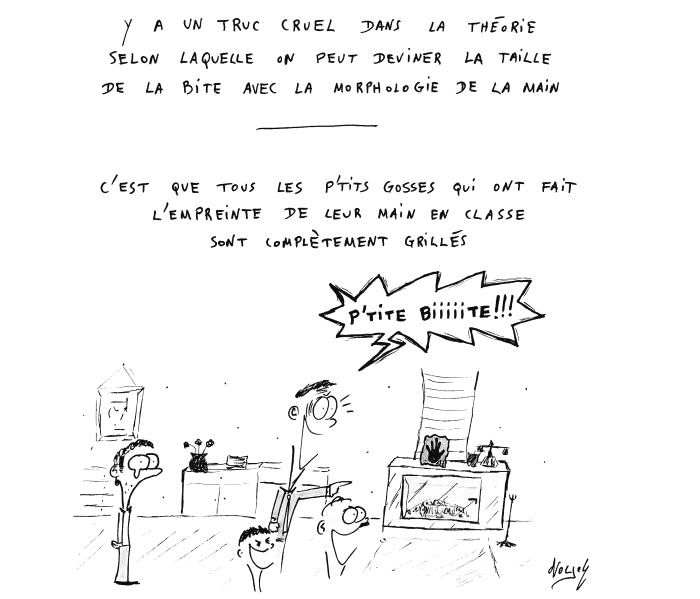 Y A UN TRUC CRUEL DANS LA THÉORIE
SELON LAQUELLE ON PEUT DEVINER LA TAILLE
DE LA BITE AVEC LA MORPHOLOGIE DE LA MAIN
C'EST QUE TOUS LES P'TITS GOSSES QUI ONT FAIT
L'EMPREINTE DE LEUR MAIN EN CLASSE
SONT COMPLÈTEMENT GRILLÉS
P'TITE BIIIIITE!!!